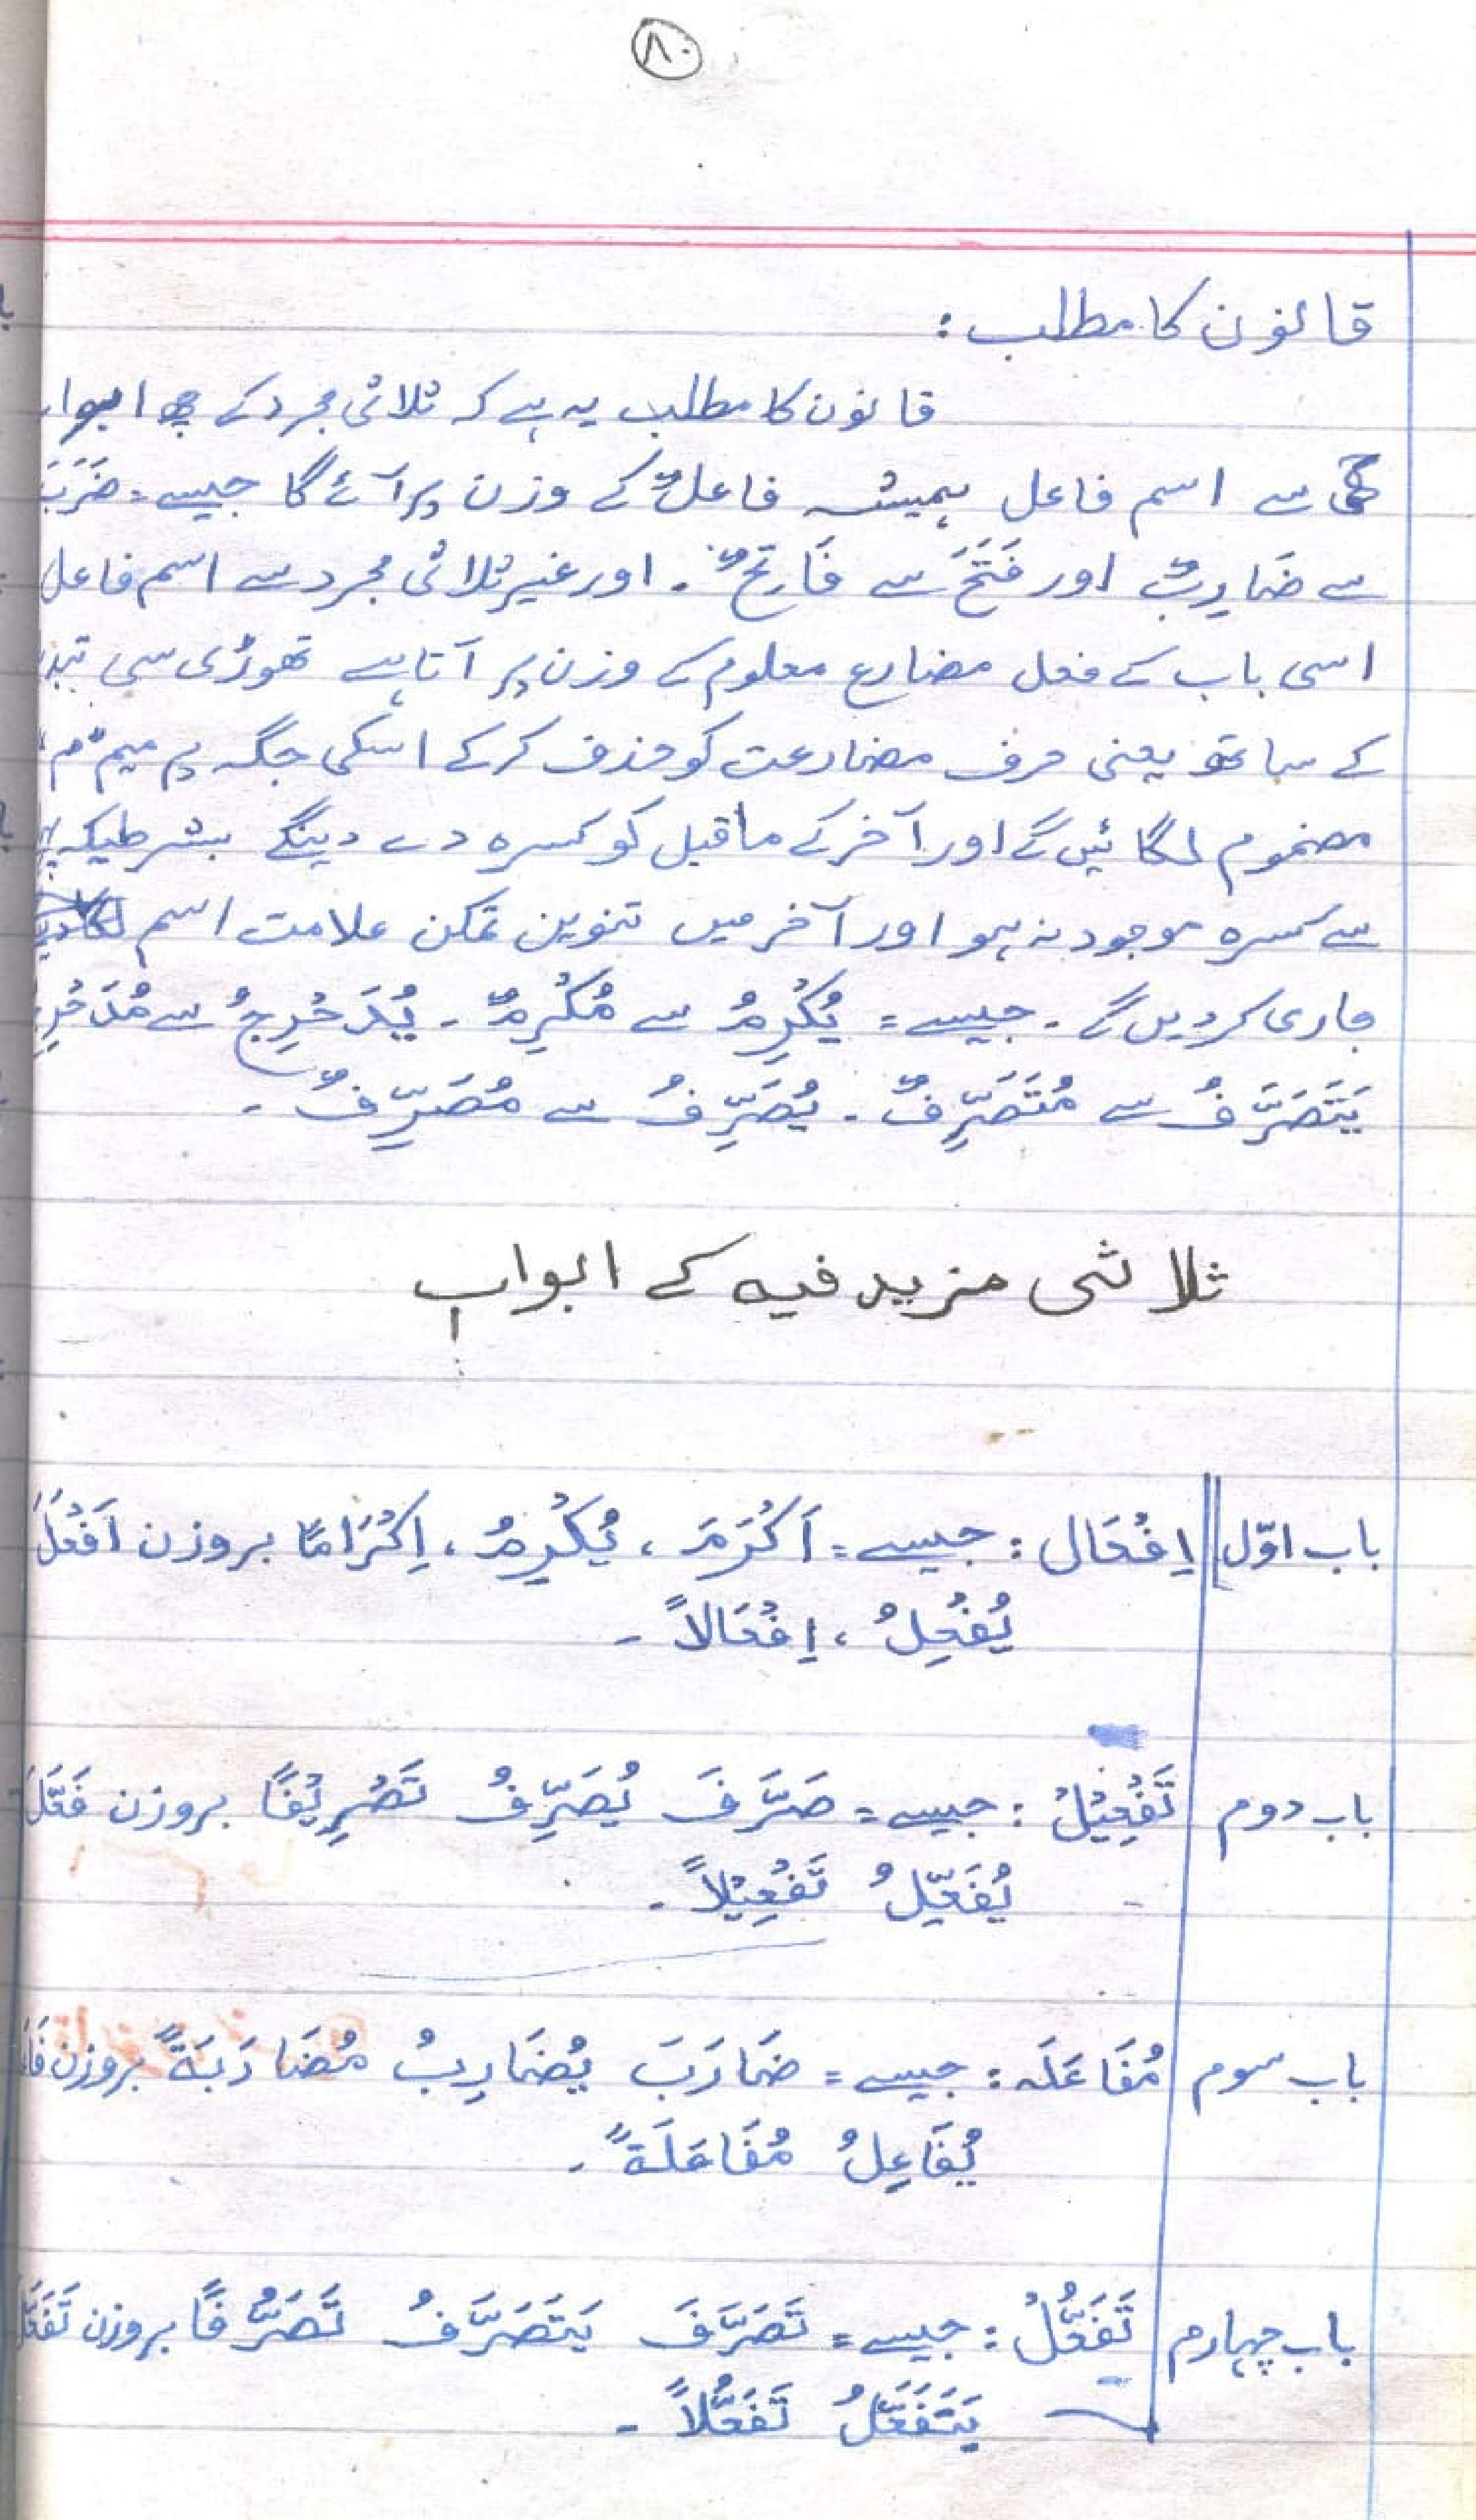 ۸۰
قانون کا مطلب :
قانون کا مطلب یہ ہے کہ ثلاثی مجرد کے چھ ابواب
سے اسم فاعل ہمیشہ فاعلٌ کے وزن پر آئے گا جیسے = ضَرَبَ
سے ضَارِبٌ اور فَتَحَ سے فَاتِحٌ ۔ اور غیر ثلاثی مجرد سے اسم فاعل
اسی باب کے فعل مضارع معلوم کے وزن پر آتا ہے تھوڑی سی
کے ساتھ یعنی حرف مضارعت کو حذف کر کے اسکی جگہ پر میم مُ
مضموم لگائیں گے اور آخر کے ماقبل کو کسرہ دے دینگے بشرطیکہ
سے کسرہ موجود نہ ہو اور آخر میں تنوین تمکن علامت اسم
جاری کردیں گے ۔ جیسے = یُکْرِمُ سے مُکْرِمٌ ۔ یُدَحْرِجُ سے مُدَحْرِجٌ
یَتَصَرَّفُ سے مُتَصَرِّفٌ ۔ یُصَرِّفُ سے مُصَرِّفٌ ۔
ثلاثی مزید فیہ کے ابواب
باب اوّل اِفْعَال : جیسے = اَکْرَمَ ، یُکْرِمُ ، اِکْرَامًا بروزن اَفْعَلَ
یُفْعِلُ ، اِفْعَالاً ۔
باب دوم تَفْعِیْلُ : جیسے = صَرَّفَ یُصَرِّفُ تَصْرِیْفًا بروزن فَعَّلَ
یُفَعِّلُ تَفْعِیْلاً ۔
باب سوم مُفَاعَلَہ : جیسے = ضَارَبَ یُضَارِبُ مُضَارَبَةً بروزن
یُفَاعِلُ مُفَاعَلَةً ۔
باب چہارم تَفَعُّلُ : جیسے = تَصَرَّفَ یَتَصَرَّفُ تَصَرُّفًا بروزن تَفَعَّلَ
یَتَفَعَّلُ تَفَعُّلاً ۔